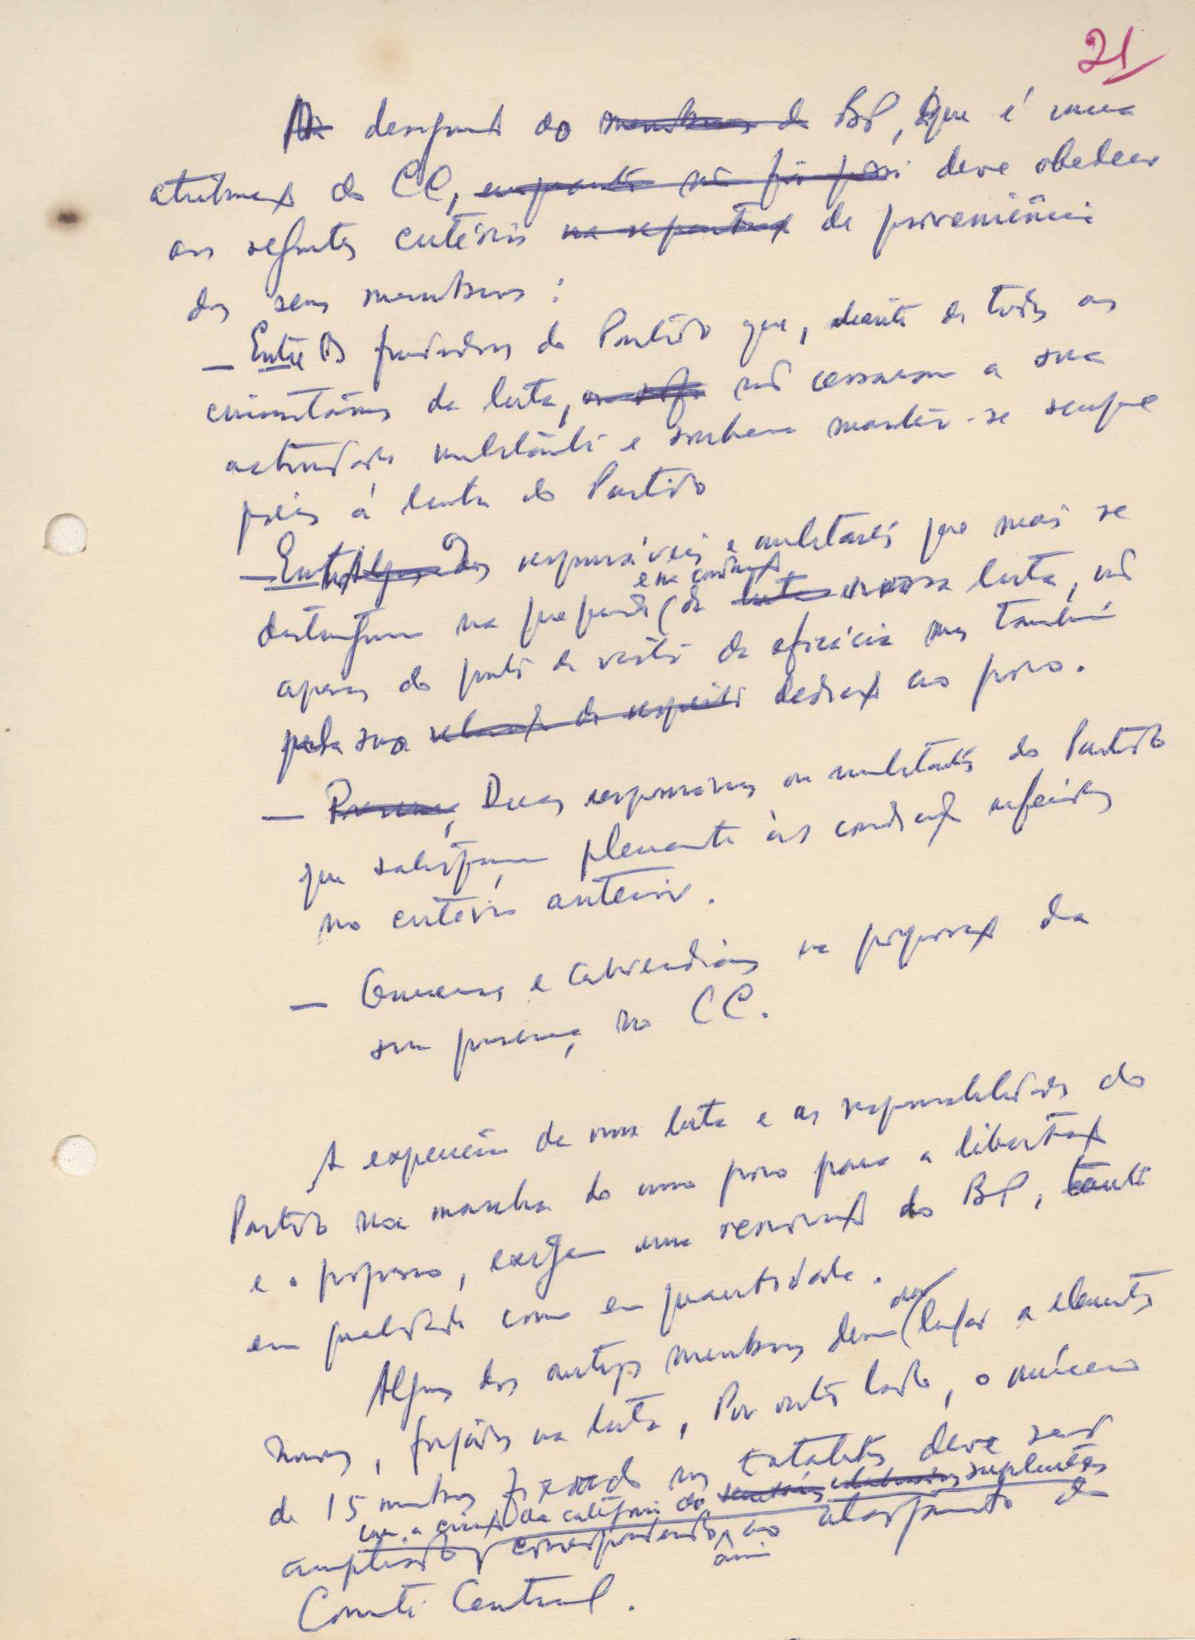 21
designação do membros do BP, que é uma
atribuição do CC, enquanto não fôr deve obedecer
aos seguintes critérios na repartição de proveniência
dos seus membros:
— Entre os fundadores do Partido que, durante de todas as
circunstâncias da luta, não cessaram a sua
actividade militante e souberam manter-se sempre
fiéis á linha do Partido
— Entre dos responsáveis e militantes que mais se
e na condução
distinguem na preparação da luta nossa luta, não
apenas do ponto de vista da eficácia mas também
pela sua dedicação ao povo.
— Duas responsáveis ou militantes do Partido
que satisfaçam plenamente às condições referidas
no critério anterior.
— Guineenses e Caboverdianos na proporção da
sua presença no CC.
A experiência da nossa luta e as responsabilidades do
Partido na marcha do nosso povo para a libertação
e o progresso, exigem uma renovação do BP, tanto
em qualidade como em quantidade.
dar
Alguns dos antigos membros devem lugar a elementos
novos, forjados na luta, Por outro lado, o número
de 15 membros fixado nos Estatutos deve ser
com a criação da categoria de suplentes
ampliado, correspondendo ao alargamento do
assim
Comité Central.